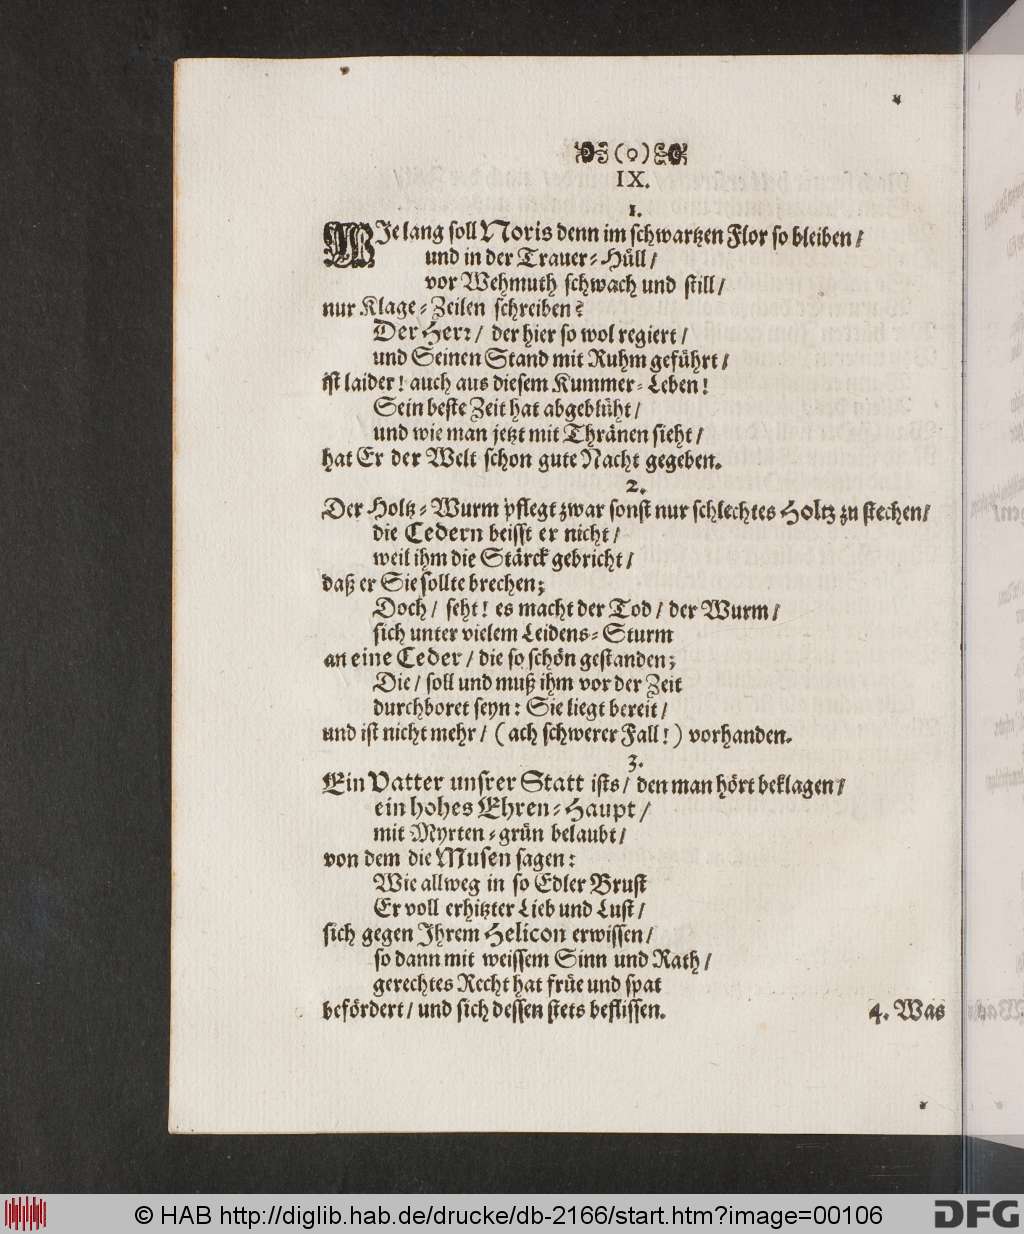 (o)
IX.
1.
WIe lang soll Noris denn im schwartzen Flor so bleiben/
und in der Trauer-Hüll/
vor Wehmuth schwach und still/
nur Klage-Zeilen schreiben?
Der Herr/ der hier so wol regiert/
und Seinen Stand mit Ruhm geführt/
ist laider! auch aus diesem Kummer-Leben!
Sein beste Zeit hat abgeblüht/
und wie man jetzt mit Thränen sieht/
hat Er der Welt schon gute Nacht gegeben.
2.
Der Holtz-Wurm pflegt zwar sonst nur schlechtes Holtz zu stechen/
die Cedern beisst er nicht/
weil ihm die Stärck gebricht/
daß er Sie sollte brechen;
Doch/ seht! es macht der Tod/ der Wurm/
sich unter vielem Leidens-Sturm
an eine Ceder/ die so schön gestanden;
Die/ soll und muß ihm vor der Zeit
durchboret seyn: Sie liegt bereit/
und ist nicht mehr/ (ach schwerer Fall!) vorhanden.
3.
Ein Vatter unsrer Statt ists/ den man hört beklagen/
ein hohes Ehren-Haupt/
mit Myrten-grün belaubt/
von dem die Musen sagen:
Wie allweg in so Edler Brust
Er voll erhitzter Lieb und Lust/
sich gegen Ihrem Helicon erwissen/
so dann mit weissem Sinn und Rath/
gerechtes Recht hat früe und spat
befördert/ und sich dessen stets beflissen.
4. Was
© HAB http://diglib.hab.de/drucke/db-2166/start.htm?image=00106
DFG